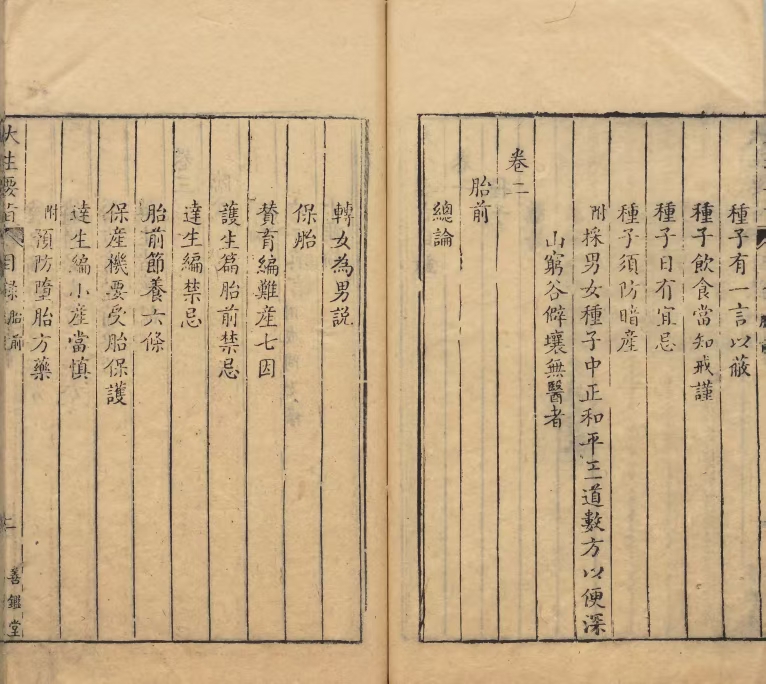 種子有一言以蔽
種子飲食當知戒謹
種子日有宜忌
種子須防暗產
附採男女種子中正和平王道數方以便深
山窮谷僻壤無醫者
卷二
胎前
總論
轉女為男說
保胎
贊育編難產七因
護生篇胎前禁忌
達生編禁忌
胎前節養六條
保產機要受胎保護
達生編小產當慎
附預防墮胎方藥
大生要旨 目錄 胎前 二 善鑑堂